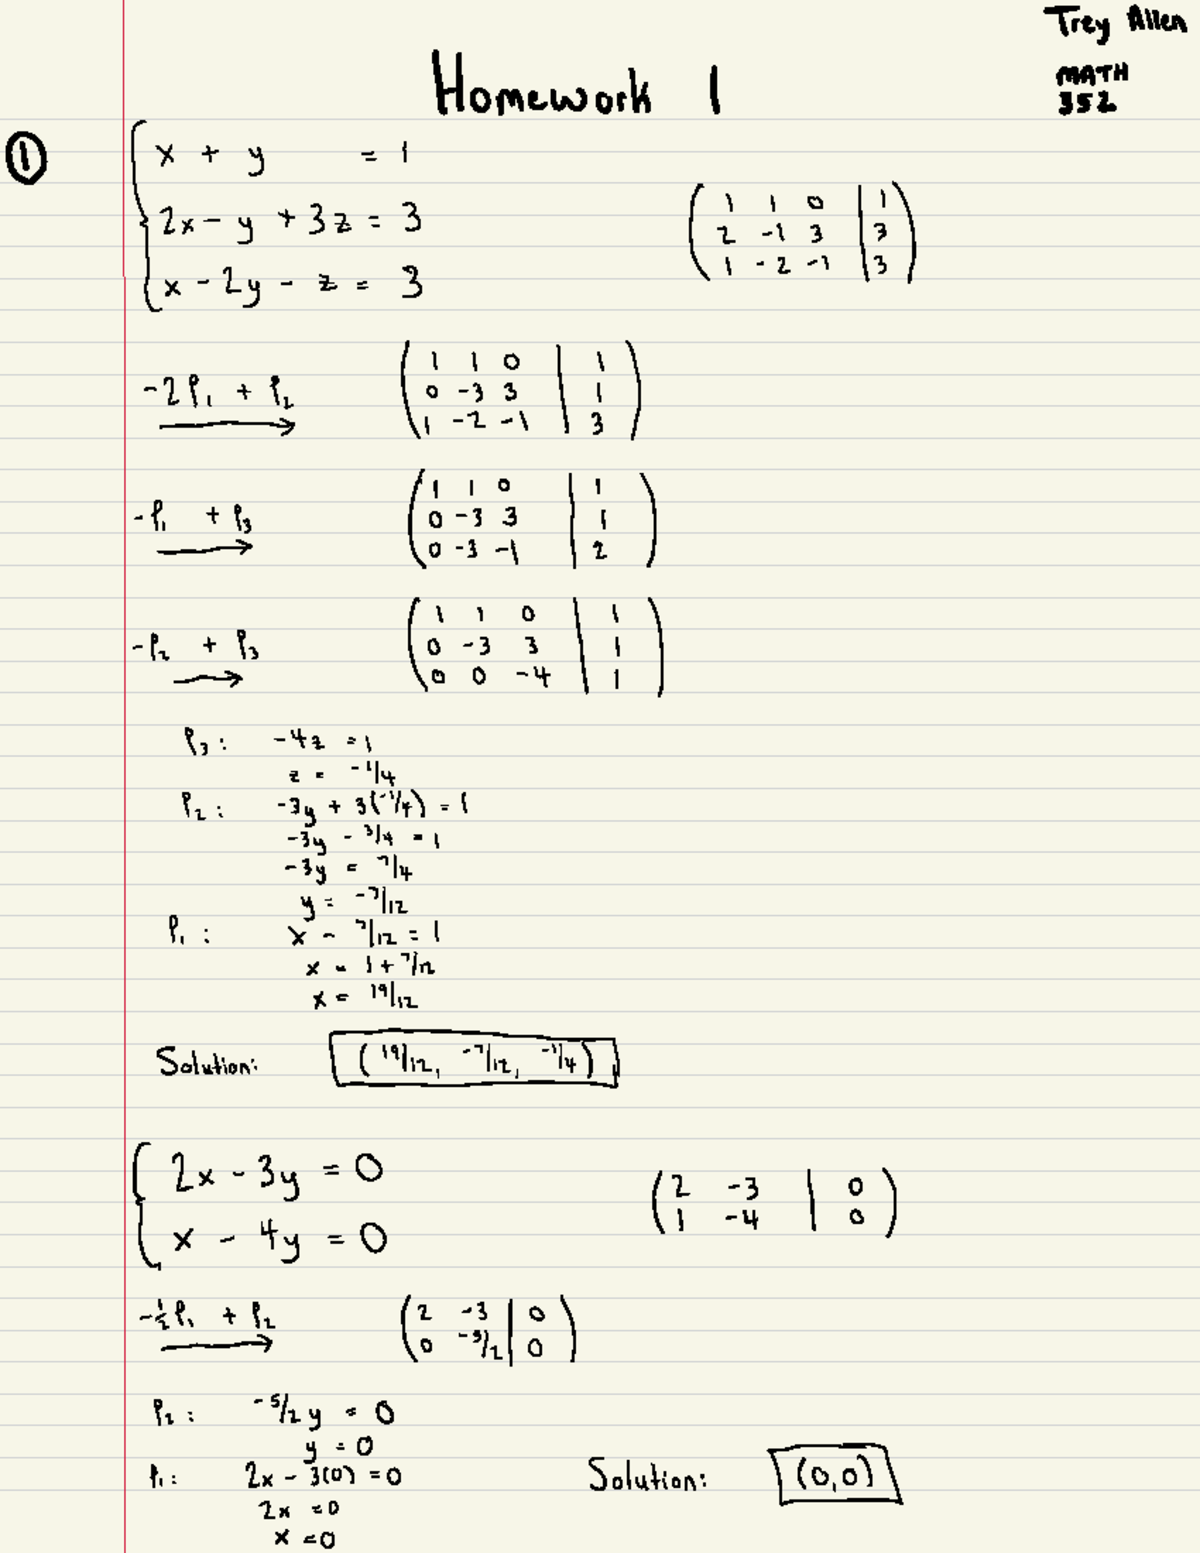 Trey Allen
MATH
352
Homework 1
① { x + y = 1
2x - y + 3z = 3
x - 2y - z = 3
( 1 1 0 | 1 )
( 2 -1 3 | 3 )
( 1 -2 -1 | 3 )
-2ρ₁ + ρ₂ →
( 1 1 0 | 1 )
( 0 -3 3 | 1 )
( 1 -2 -1 | 3 )
-ρ₁ + ρ₃ →
( 1 1 0 | 1 )
( 0 -3 3 | 1 )
( 0 -3 -1 | 2 )
-ρ₂ + ρ₃ →
( 1 1 0 | 1 )
( 0 -3 3 | 1 )
( 0 0 -4 | 1 )
ρ₃: -4z = 1
z = -1/4
ρ₂: -3y + 3(-1/4) = 1
-3y - 3/4 = 1
-3y = 7/4
y = -7/12
ρ₁: x - 7/12 = 1
x = 1 + 7/12
x = 19/12
Solution: (19/12, -7/12, -1/4)
{ 2x - 3y = 0
x - 4y = 0
( 2 -3 | 0 )
( 1 -4 | 0 )
-½ρ₁ + ρ₂ →
( 2 -3 | 0 )
( 0 -5/2 | 0 )
ρ₂: -5/2 y = 0
y = 0
ρ₁: 2x - 3(0) = 0
2x = 0
x = 0
Solution: (0,0)